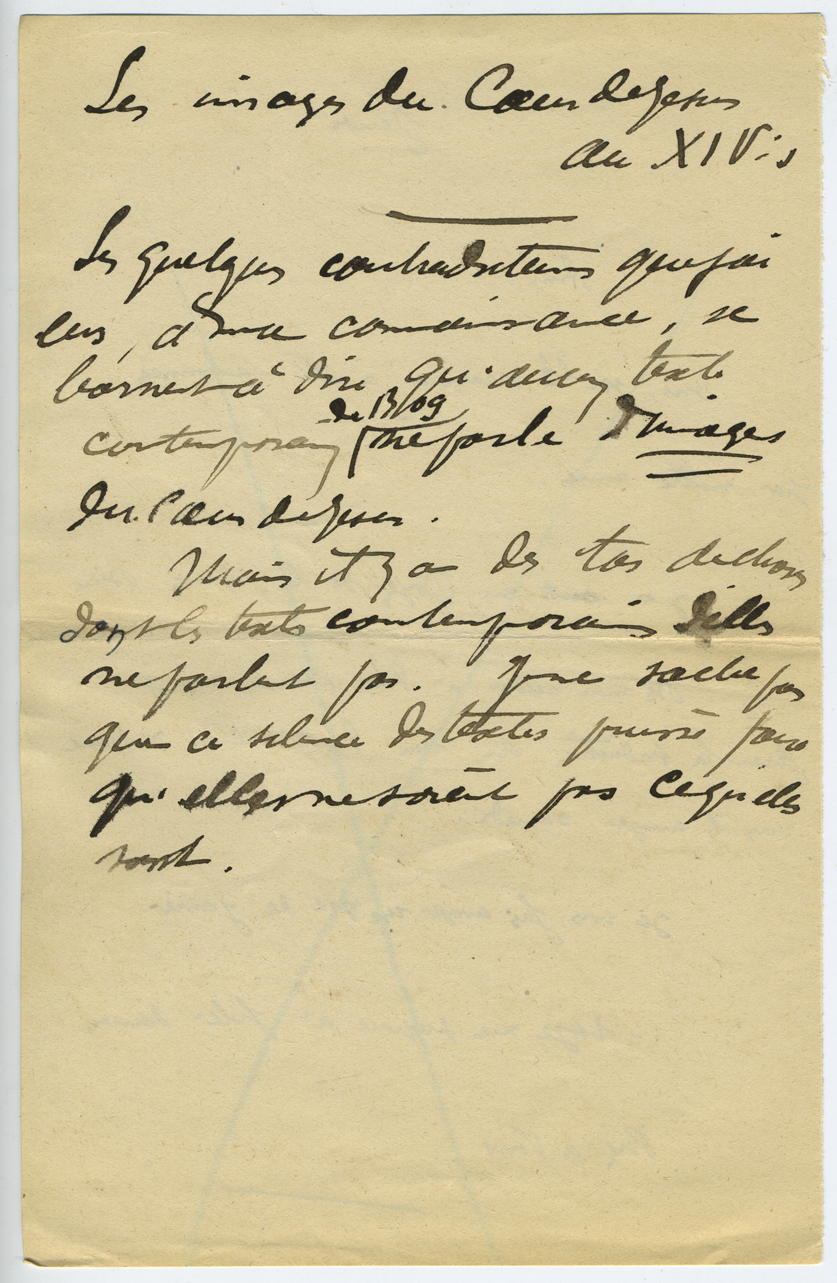 Les images du Cœur de Jesus
au XIV s
Les quelques contradicteurs que j'ai
eus, à ma connaissance, se
bornent à dire qu'aucun texte
contemporain ne parle d'images
de 1309
du Cœur de Jesus.
Mais il y a des tas de choses
dont les textes contemporains d'elles
ne parlent pas. Je ne sache pas
que ce silence des textes puisse faire
qu'elles ne soient pas ce qu'elles
sont.